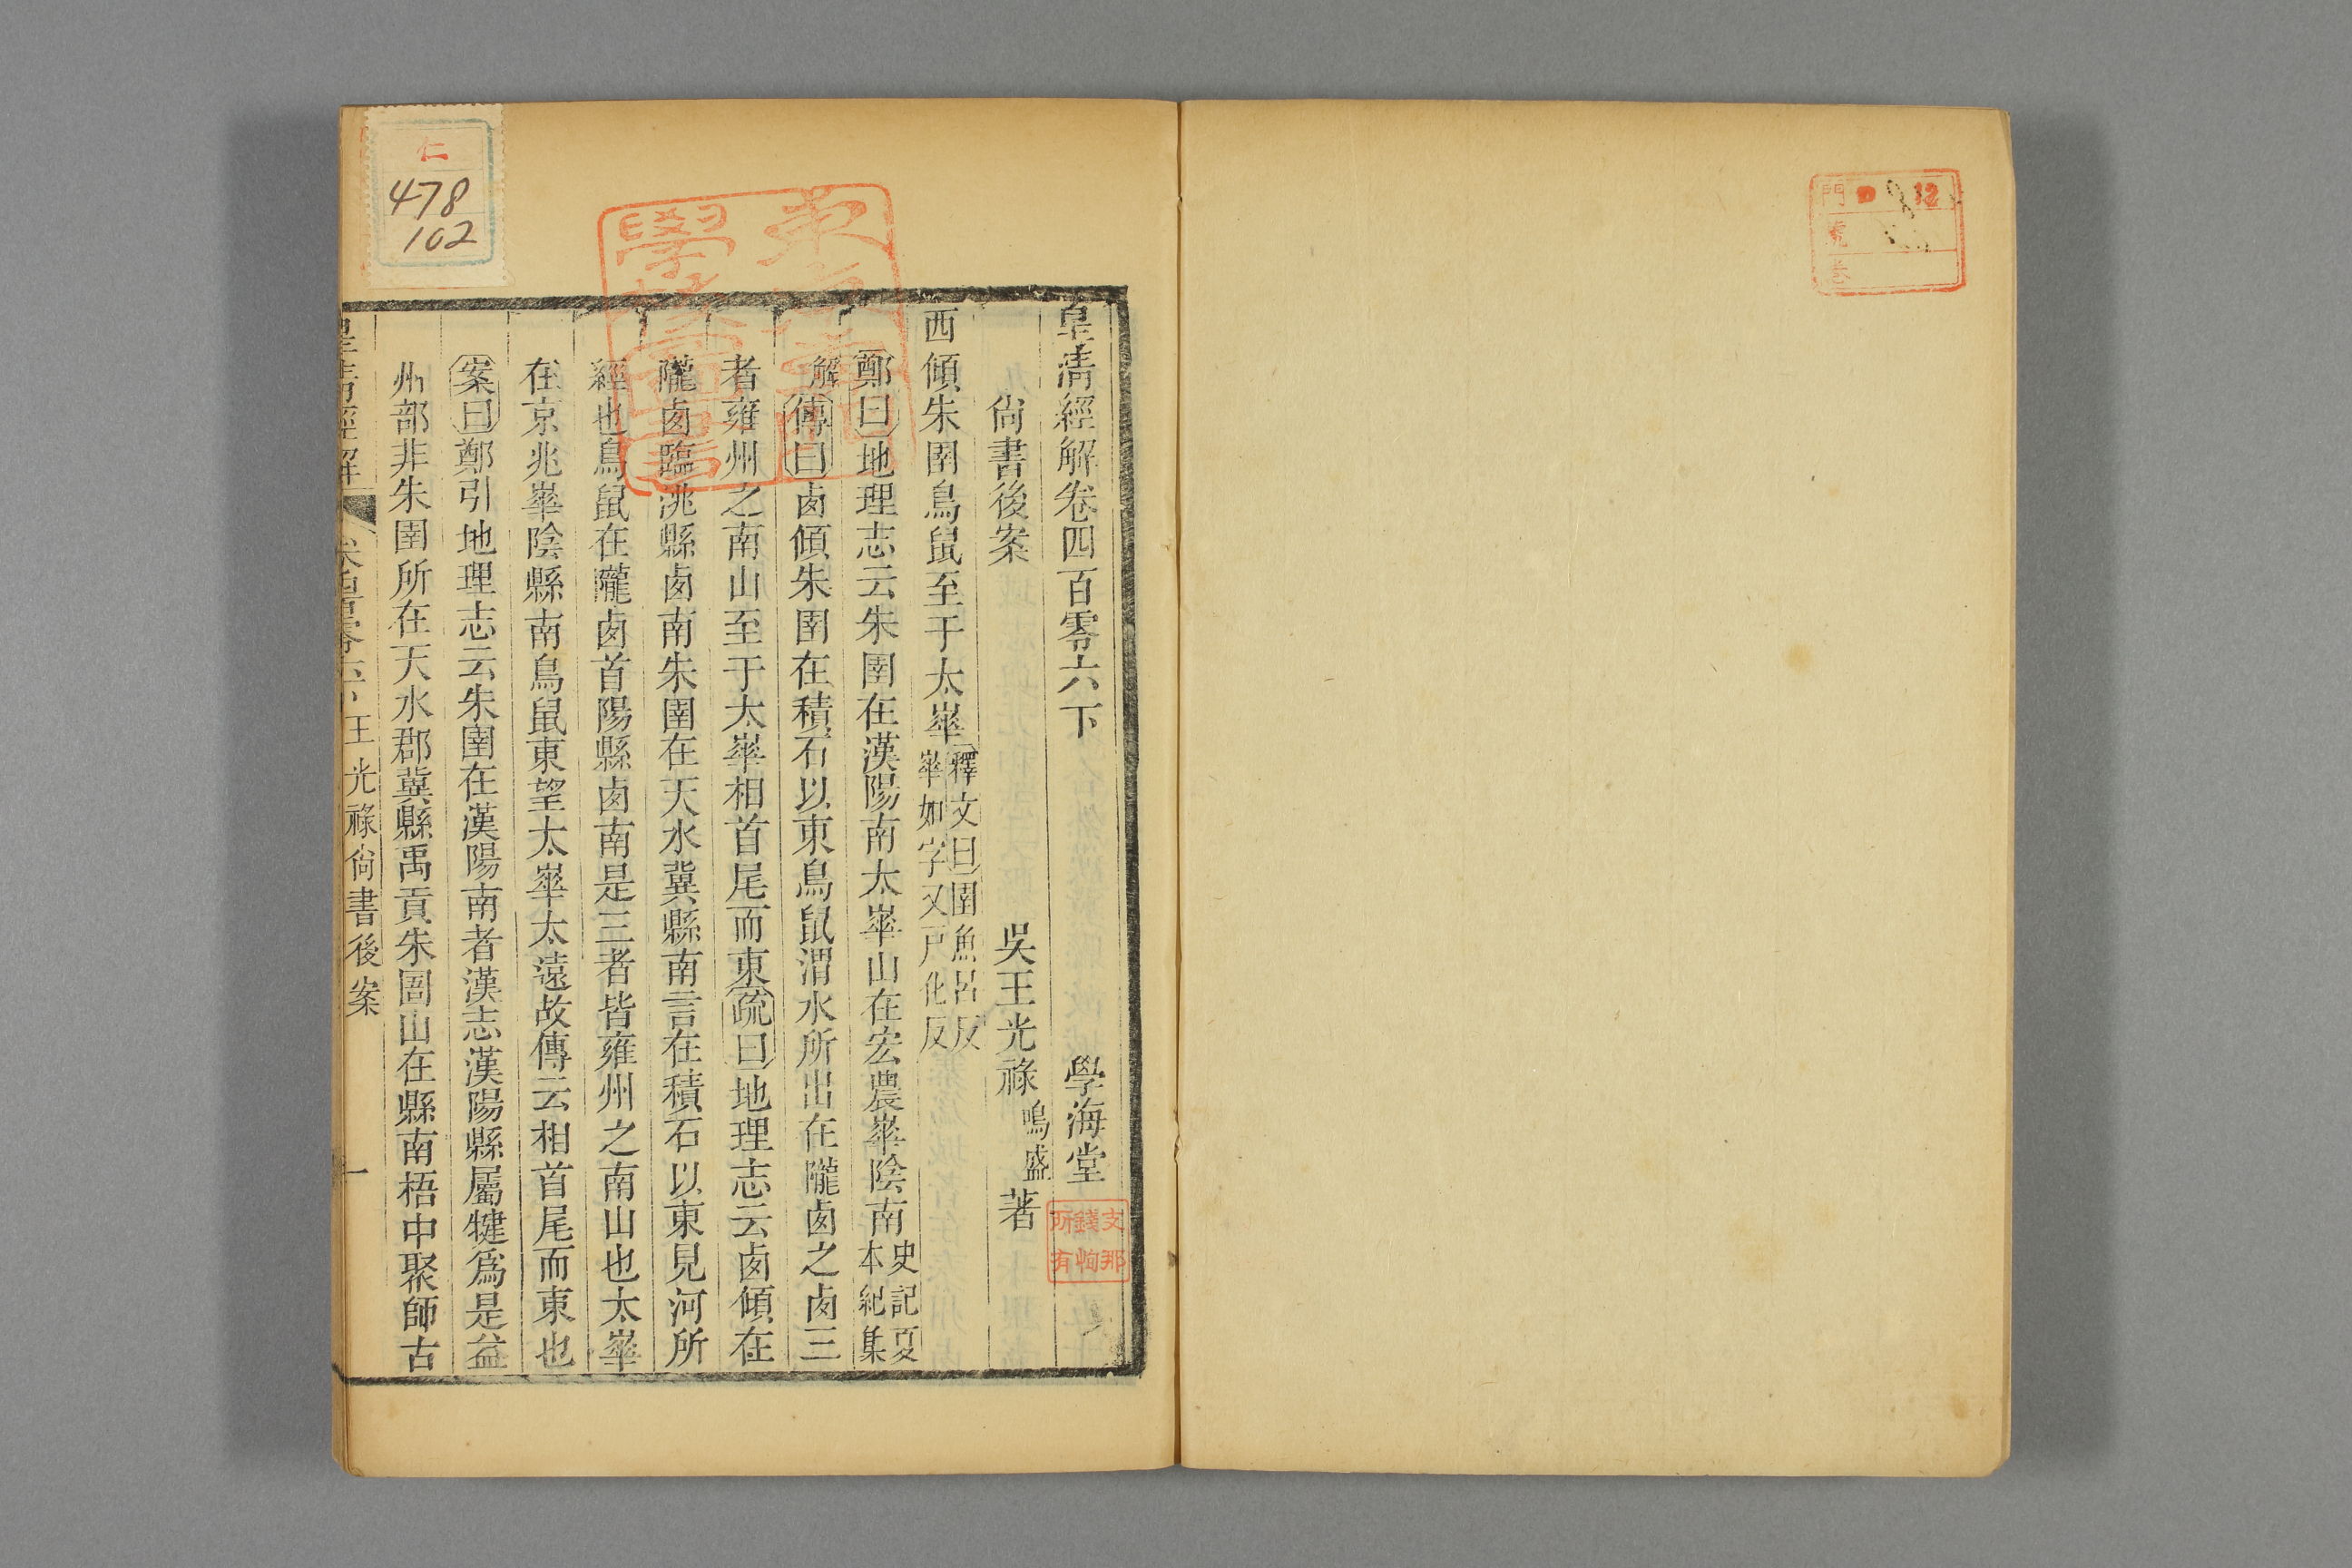 皇清經解卷四百零六下
學海堂
尙書後案
吳王光祿鳴盛著
西傾朱圉鳥鼠至于太崋釋文曰圉魚呂反
崋如字又戸化反
鄭曰地理志云朱圉在漢陽南太崋山在宏農崋陰南史記夏
本紀集
解傳曰卤傾朱圉在積石以東鳥鼠渭水所出在隴卤之卤三
者雍州之南山至于太崋相首尾而東疏曰地理志云卤傾在
隴卤臨洮縣卤南朱圉在天水冀縣南言在積石以東見河所
經也鳥鼠在隴卤首陽縣卤南是三者皆雍州之南山也太崋
在京兆崋陰縣南鳥鼠東望太崋太遠故傳云相首尾而東也
案曰鄭引地理志云朱圉在漢陽南者漢志漢陽縣屬犍爲是益
州部非朱圉所在天水郡冀縣禹貢朱圄山在縣南梧中聚師古
皇清經解
卷四百零六下
王光祿尙書後案
一
仁
478
102
支那
錢恂
所有
門
號
卷
12